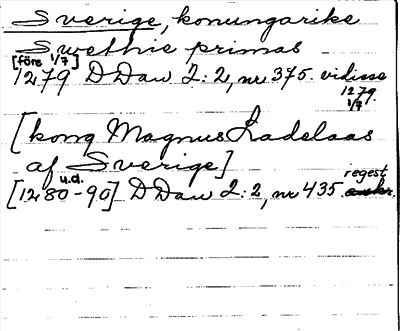 Sverige, konungarike
Swethie primas
[före 1/7]
1279 DDan 2:2, nr 375. vidisse
1279.
1/7
[kong Magnus Ladelaas
af Sverige]
u.d. regest
[1280-90] DDan 2:2, nr 435.